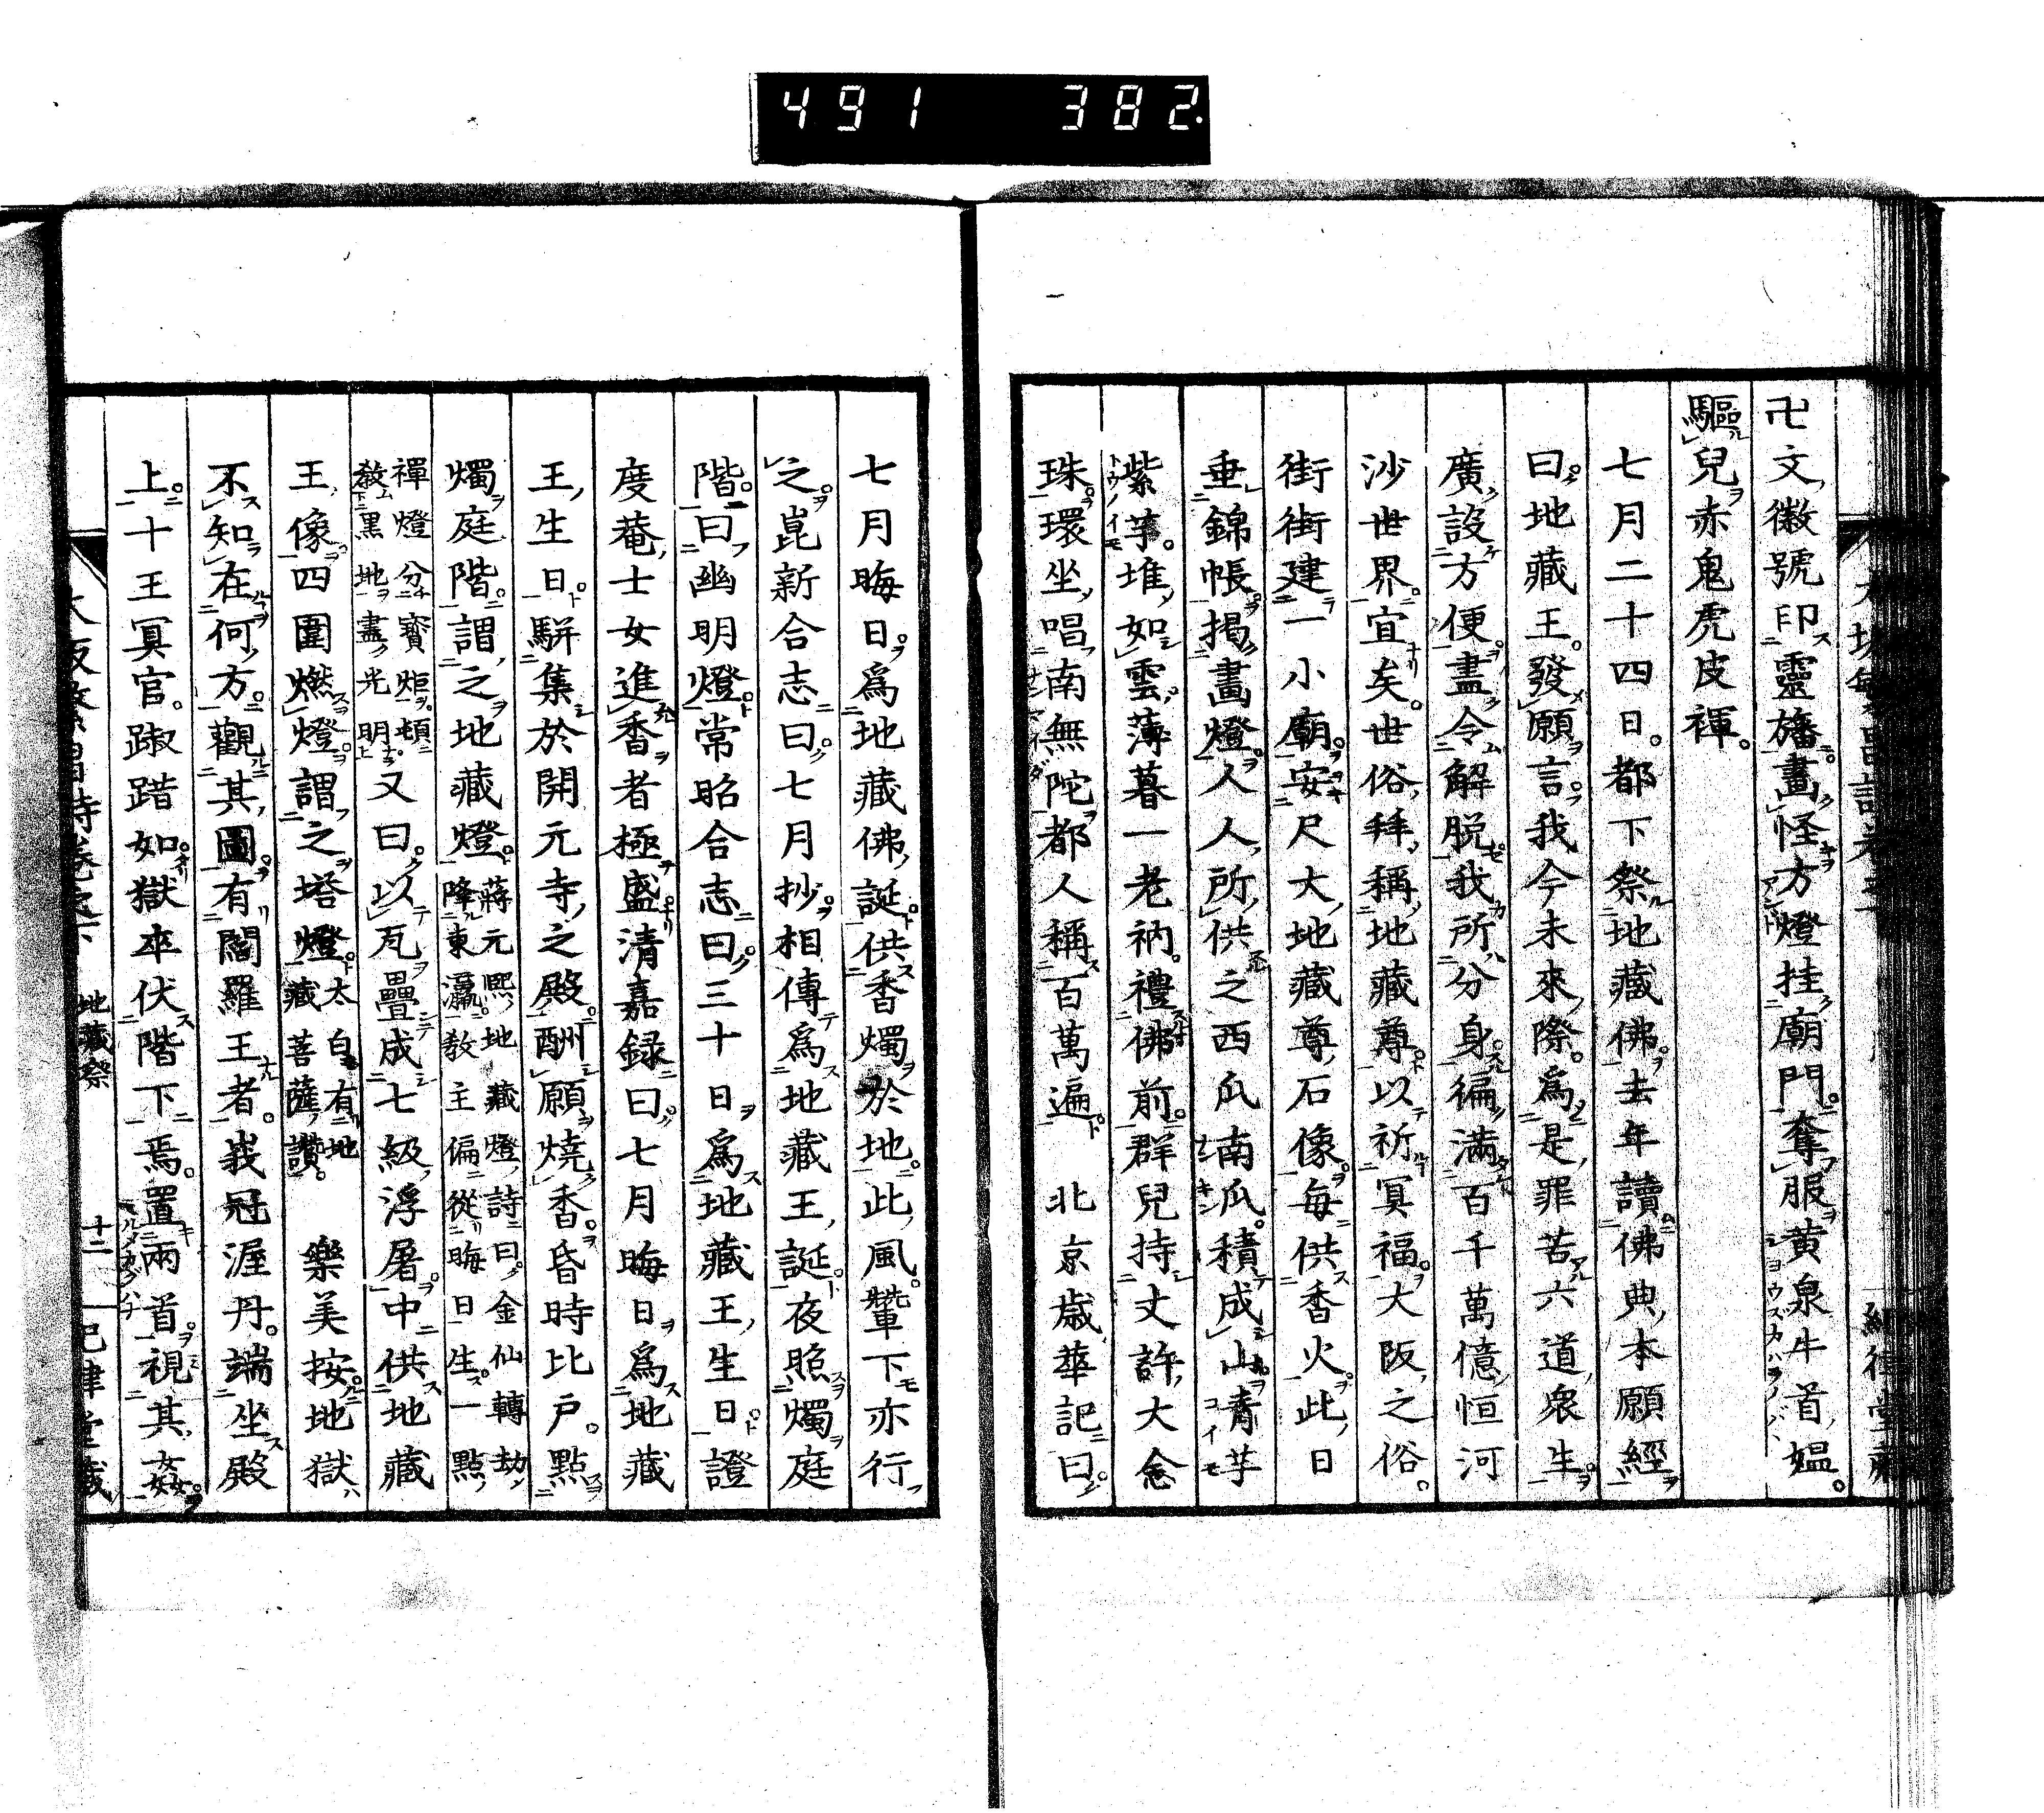 491 382
卍文徽號印靈旛畫怪方燈挂廟門奪服黄泉牛首媼
驅兒赤鬼虎皮褌
七月二十四日都下祭地藏佛去年讀佛典本願經
曰地藏王發願言我今未來際爲是罪苦六道衆生
廣設方便盡令解脱我所分身徧滿百千萬億恒河
沙世界宜矣世俗拜稱地藏尊以祈冥福大阪之俗
街街建一小廟安尺大地藏尊石像每供香火此日
垂錦帳揭畫燈人人所供之西瓜南瓜積成山青芋
紫芋堆如雲薄暮一老衲禮佛前群兒持丈許大念
珠環坐唱南無陀都人稱百萬遍 北京歳華記曰
七月晦日爲地藏佛誕供香燭於地此風輦下亦行
之崑新合志曰七月抄相傳爲地藏王誕夜照燭庭
階曰幽明燈常昭合志曰三十日爲地藏王生日證
度菴士女進香者極盛清嘉録曰七月晦日爲地藏
王生日駢集於開元寺之殿酬願燒香昏時比戸點
燭庭階謂之地藏燈蔣元熙地藏燈詩曰金仙轉劫
降東瀛教主偏從晦日生一點
禪燈分寳炬頓
教黑地盡光明又曰以瓦疊成七級浮屠中供地藏
王像四圍燃燈謂之塔燈太白有地
藏菩薩讃 樂美按地獄
不知在何方觀其圖有閻羅王者峩冠渥丹端坐殿
上十王冥官踧踖如獄卒伏階下焉置兩首視其姦
地藏祭 十二